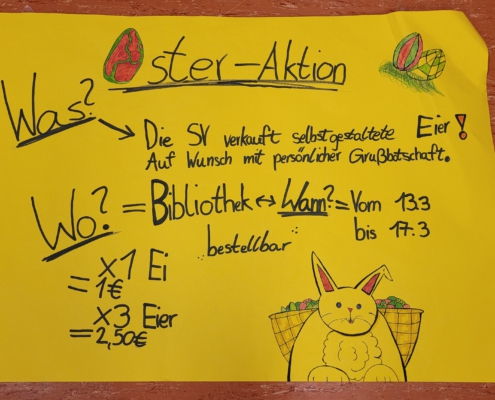 Oster-Aktion
Was?
Die SV verkauft selbstgestaltete Eier!
Auf Wunsch mit persönlicher Grußbotschaft.
Wo? = Bibliothek ↔ Wann? = Vom 13.3
bis 17.3
"bestellbar"
x1 Ei
= 1€
x3 Eier
= 2,50€